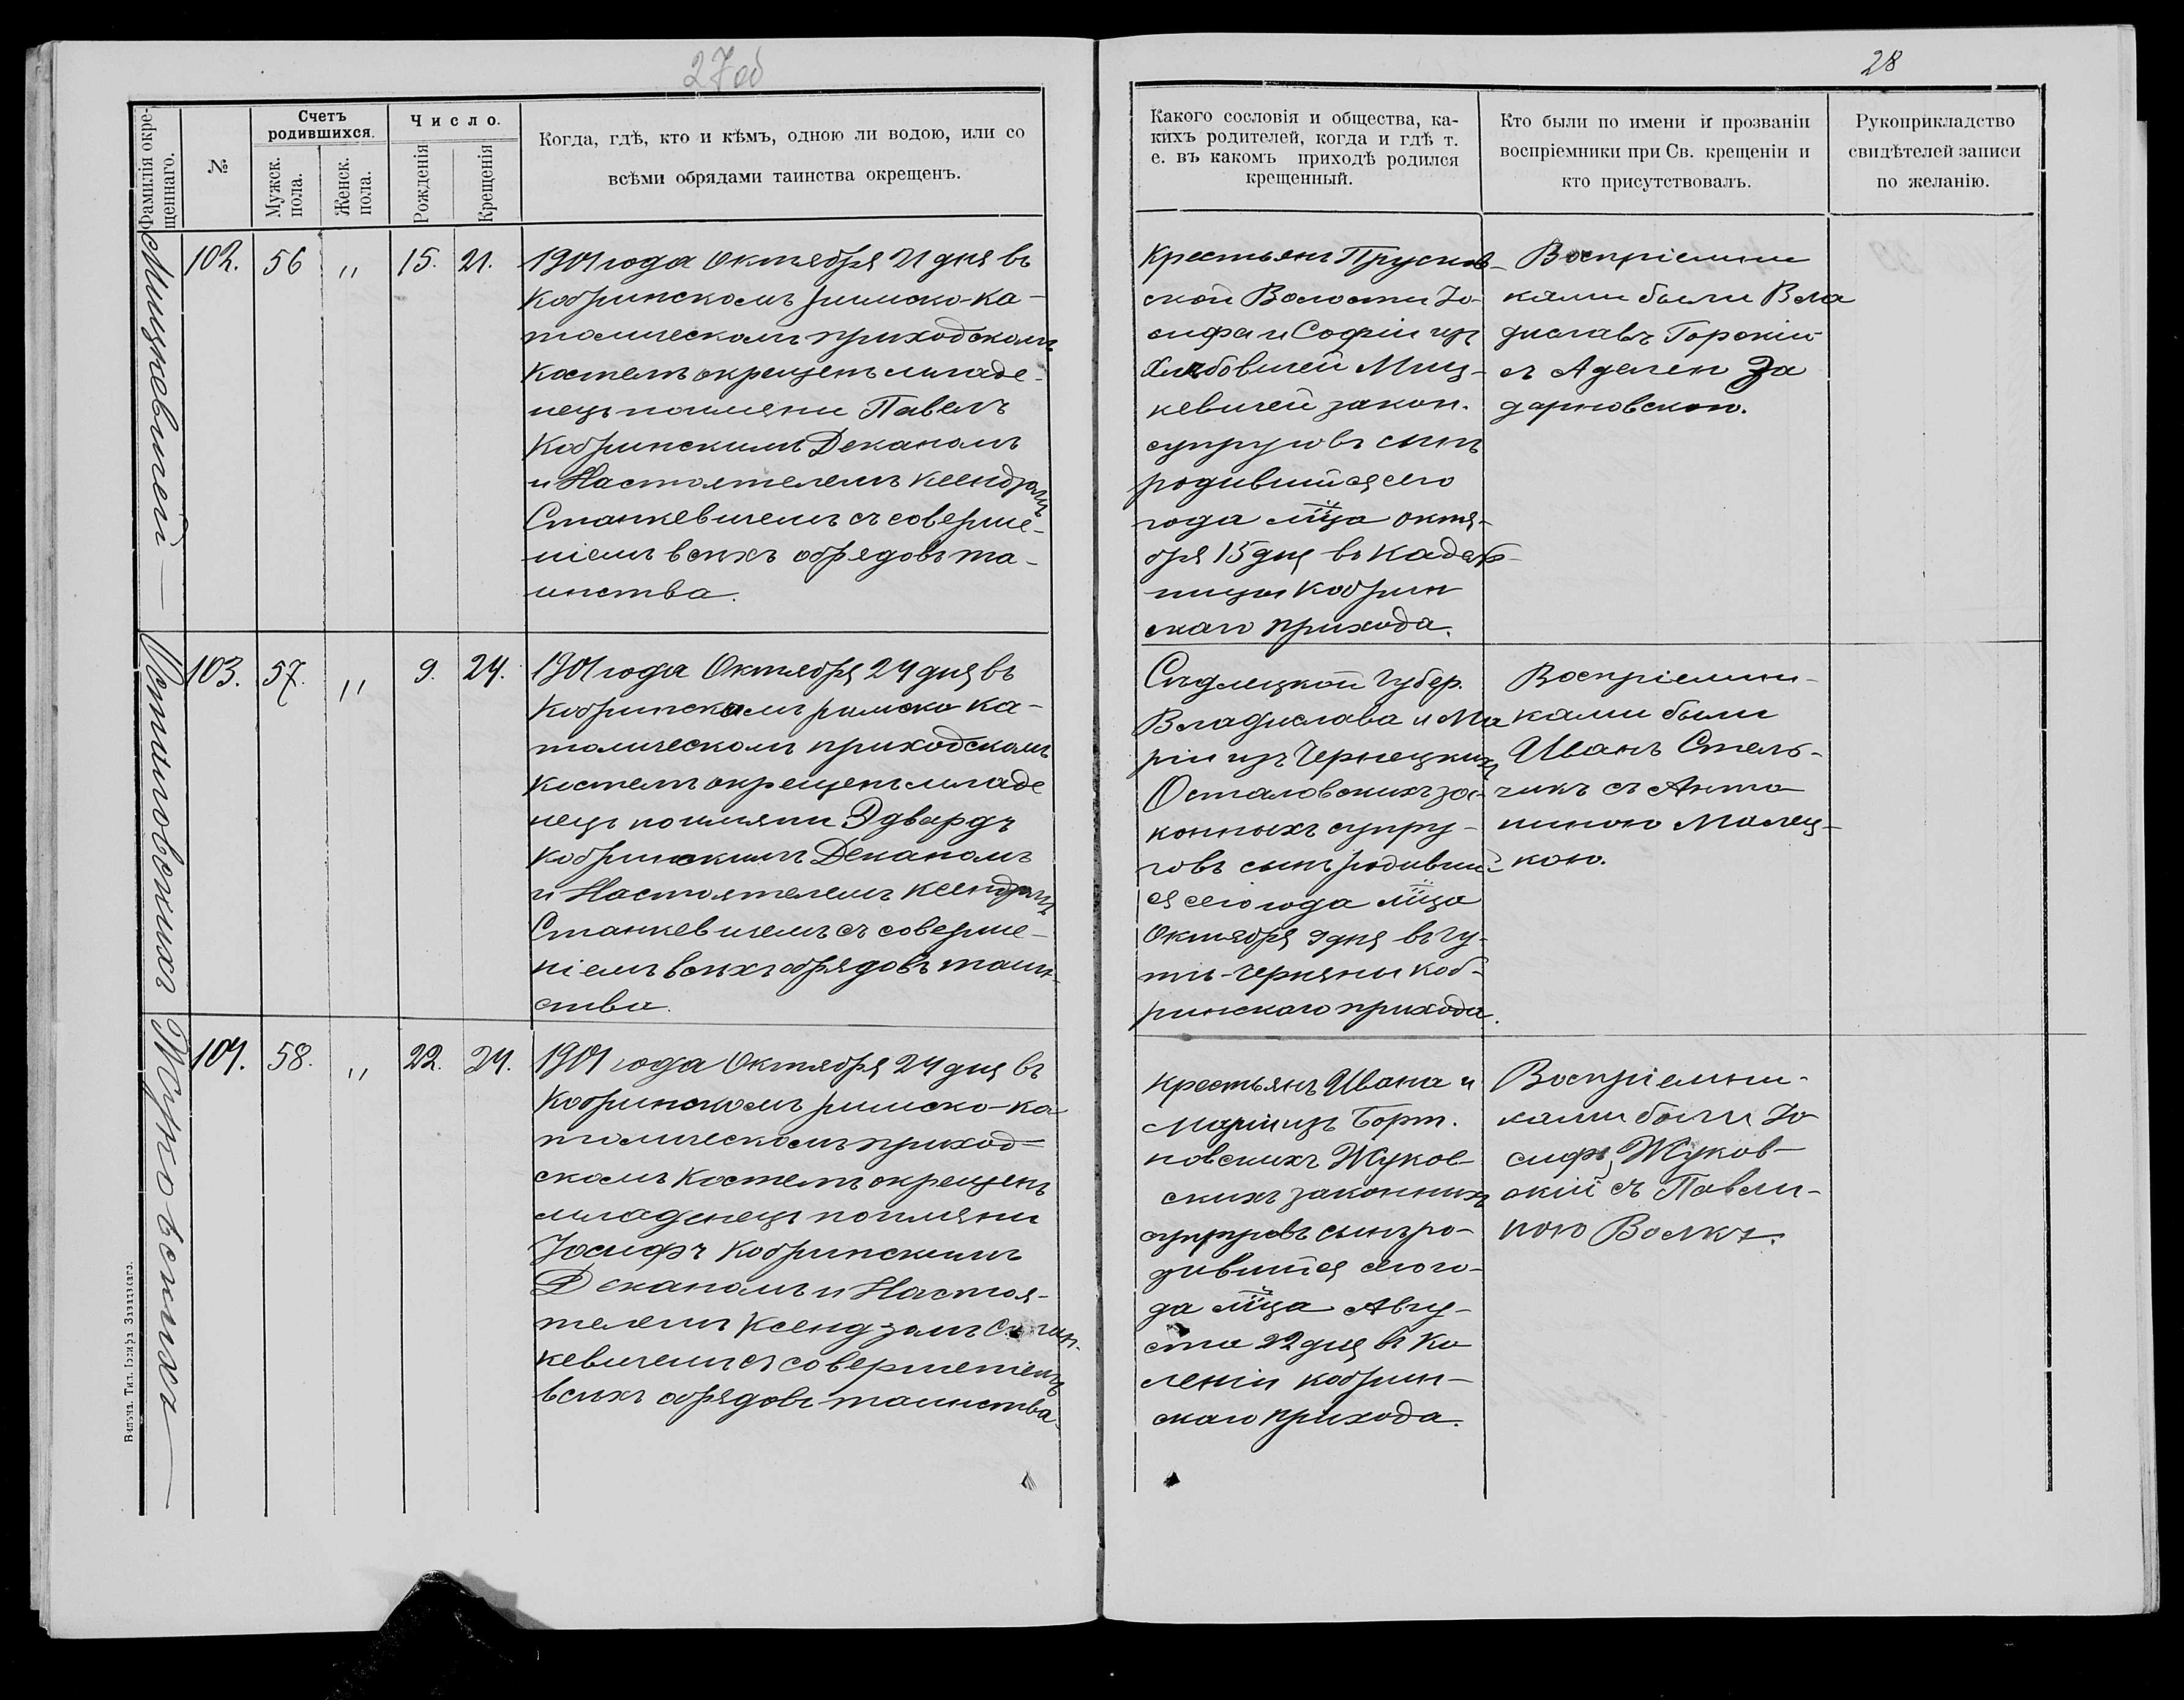 27об
28
Фамилія окре-
щеннаго.
№
Счетъ
родившихся.
Мужск.
пола.
Женск.
пола.
Число.
Рожденія
Крещенія
Когда, гдѣ, кто и кѣмъ, одною ли водою, или со
всѣми обрядами таинства окрещенъ.
Какого сословія и общества, ка-
кихъ родителей, когда и гдѣ т.
е. въ какомъ приходѣ родился
крещенный.
Кто были по имени и прозваніи
воспріемники при Св. крещеніи и
кто присутствовалъ.
Рукоприкладство
свидѣтелей записи
по желанію.
Мицкевичей
102. 56 " 15. 21.
1901 года Октября 21 дня въ
Кобринскомъ римско-ка-
толическомъ приходскомъ
Костелѣ окрещенъ младе-
нецъ по имени Павелъ
Кобринскимъ Деканомъ
и Настоятелемъ Ксендзомъ
Станкевичемъ съ соверше-
ніемъ всѣхъ обрядовъ та-
инства.
Крестьянъ Прусков-
ской Волости Іо-
сифа и Софіи изъ
Хлѣбовичей Миц-
кевичей закон.
супруговъ сынъ
родившійся сего
года мѣца октя-
бря 15 дня въ
Кобрин
скаго прихода.
Воспріемни
ками были Вла
диславъ Горскій
съ Аделею За
дарновскою.
103. 57. " 9. 24.
1901 года Октября 24 дня въ
Кобринскомъ римско ка-
толическомъ приходскомъ
Костелѣ окрещенъ младе
нецъ по имени Эдвардъ
Кобринскимъ Деканомъ
и Настоятелемъ Ксендзомъ
Станкевичемъ съ соверше-
ніемъ всѣхъ обрядовъ таин-
ства.
Сѣдлецкой Губер.
Владислава и Ма
ріи изъ Чернецкихъ
Осталовскихъ за-
конныхъ супру-
говъ сынъ родивший-
ся сего года мѣца
Октября 9 дня въ Гу-
тѣ-Черняны Коб-
ринскаго прихода.
Воспріемни-
ками были
Иванъ Стель-
чикъ съ Анто
ниною Малец-
кою.
Жуковскихъ
104. 58. " 22. 24.
1901 года Октября 24 дня въ
Кобринскомъ римско-ка-
толическомъ приход-
скомъ Костелѣ окрещенъ
младенецъ по имени
Іосифъ Кобринскимъ
Деканомъ и Настоя-
телемъ Ксендзомъ Стан-
кевичемъ съ совершеніемъ
всѣхъ обрядовъ таинства.
Крестьянъ Ивана и
Маріи изъ Борт.
новскихъ Жуков-
скихъ законныхъ
супруговъ сынъ ро-
дившійся сего го-
да мѣца Авгу-
ста 22 дня въ Ка
леніи Кобрин-
скаго прихода.
Воспріемни-
ками были Іо
сифъ Жуков-
скій съ Павли-
ною Волкъ.
Вильна. Тип. Іосифа Завадскаго.